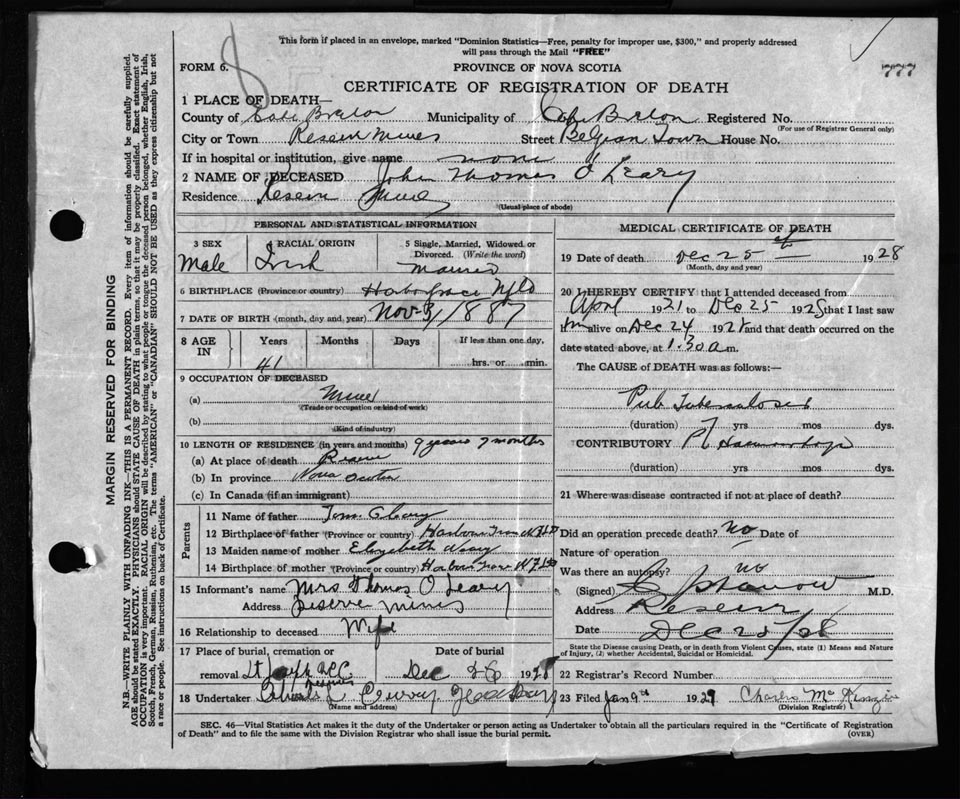 This form if placed in an envelope, marked "Dominion Statistics—Free, penalty for improper use, $300," and properly addressed
will pass through the Mail "FREE"
FORM 6. 8 PROVINCE OF NOVA SCOTIA 777
CERTIFICATE OF REGISTRATION OF DEATH
1 PLACE OF DEATH—
County of Cape Breton Municipality of Cape Breton Registered No.
(For use of Registrar General only)
City or Town Reserve Mines Street Belgian Town House No.
If in hospital or institution, give name none
2 NAME OF DECEASED John Thomas O'Leary
Residence Reserve Mines
(Usual place of abode)
PERSONAL AND STATISTICAL INFORMATION
3 SEX Male
4 RACIAL ORIGIN Irish
5 Single, Married, Widowed or Divorced. (Write the word) Married
6 BIRTHPLACE (Province or country) Harbor Grace Nfld
7 DATE OF BIRTH (month, day and year) Nov 3, 1887
8 AGE IN Years Months Days If less than one day,
41 hrs. or min.
9 OCCUPATION OF DECEASED
(a) Miner
(Trade or occupation or kind of work)
(b)
(Kind of industry)
10 LENGTH OF RESIDENCE (in years and months) 9 years 7 months
(a) At place of death Reserve
(b) In province Nova Scotia
(c) In Canada (if an immigrant)
Parents
11 Name of father Tom O Leary
12 Birthplace of father (Province or country) Harbour Grace Nfld
13 Maiden name of mother Elizabeth
14 Birthplace of mother (Province or country) Harbour Grace Nfld
15 Informant's name Mrs Thomas O Leary
Address Reserve Mines
16 Relationship to deceased Wife
17 Place of burial, cremation or Date of burial
removal Dec 26 1928
18 Undertaker Curry Glace Bay
(Name and address)
MEDICAL CERTIFICATE OF DEATH
19 Date of death Dec 25th 1928
(Month, day and year)
20 I HEREBY CERTIFY that I attended deceased from
April 1921 to Dec 25 1928 that I last saw
him alive on Dec 24 1928 and that death occurred on the
date stated above, at 1.30 a.m.
The CAUSE of DEATH was as follows:—
Pul Tuberculosis
(duration) 7 yrs mos dys.
CONTRIBUTORY Haemorrhage
(duration) yrs mos. dys.
21 Where was disease contracted if not at place of death?
Did an operation precede death? No Date of
Nature of operation
Was there an autopsy? no
(Signed) M.D.
Address Reserve
Date Dec 25/28
State the Disease causing Death, or in death from Violent Causes, state (1) Means and Nature
of Injury, (2) whether Accidental, Suicidal or Homicidal.
22 Registrar's Record Number
23 Filed Jan 9th 1929 Charles McKenzie
(Division Registrar)
SEC. 46—Vital Statistics Act makes it the duty of the Undertaker or person acting as Undertaker to obtain all the particulars required in the "Certificate of Registration
of Death" and to file the same with the Division Registrar who shall issue the burial permit. (OVER)
MARGIN RESERVED FOR BINDING
N.B—WRITE PLAINLY WITH UNFADING INK—THIS IS A PERMANENT RECORD. Every item of information should be carefully supplied.
AGE should be stated EXACTLY. PHYSICIANS should STATE CAUSE OF DEATH in plain terms, so that it may be properly classified. Exact statement of
OCCUPATION is very important. RACIAL ORIGIN will be described by stating to what people or tongue the deceased person belonged, whether English, Irish,
Scotch, French, German, Russian, Ruthenian, etc. The terms "AMERICAN" or "CANADIAN" SHOULD NOT BE USED as they express citizenship but not
a race or people. See instructions on back of Certificate.